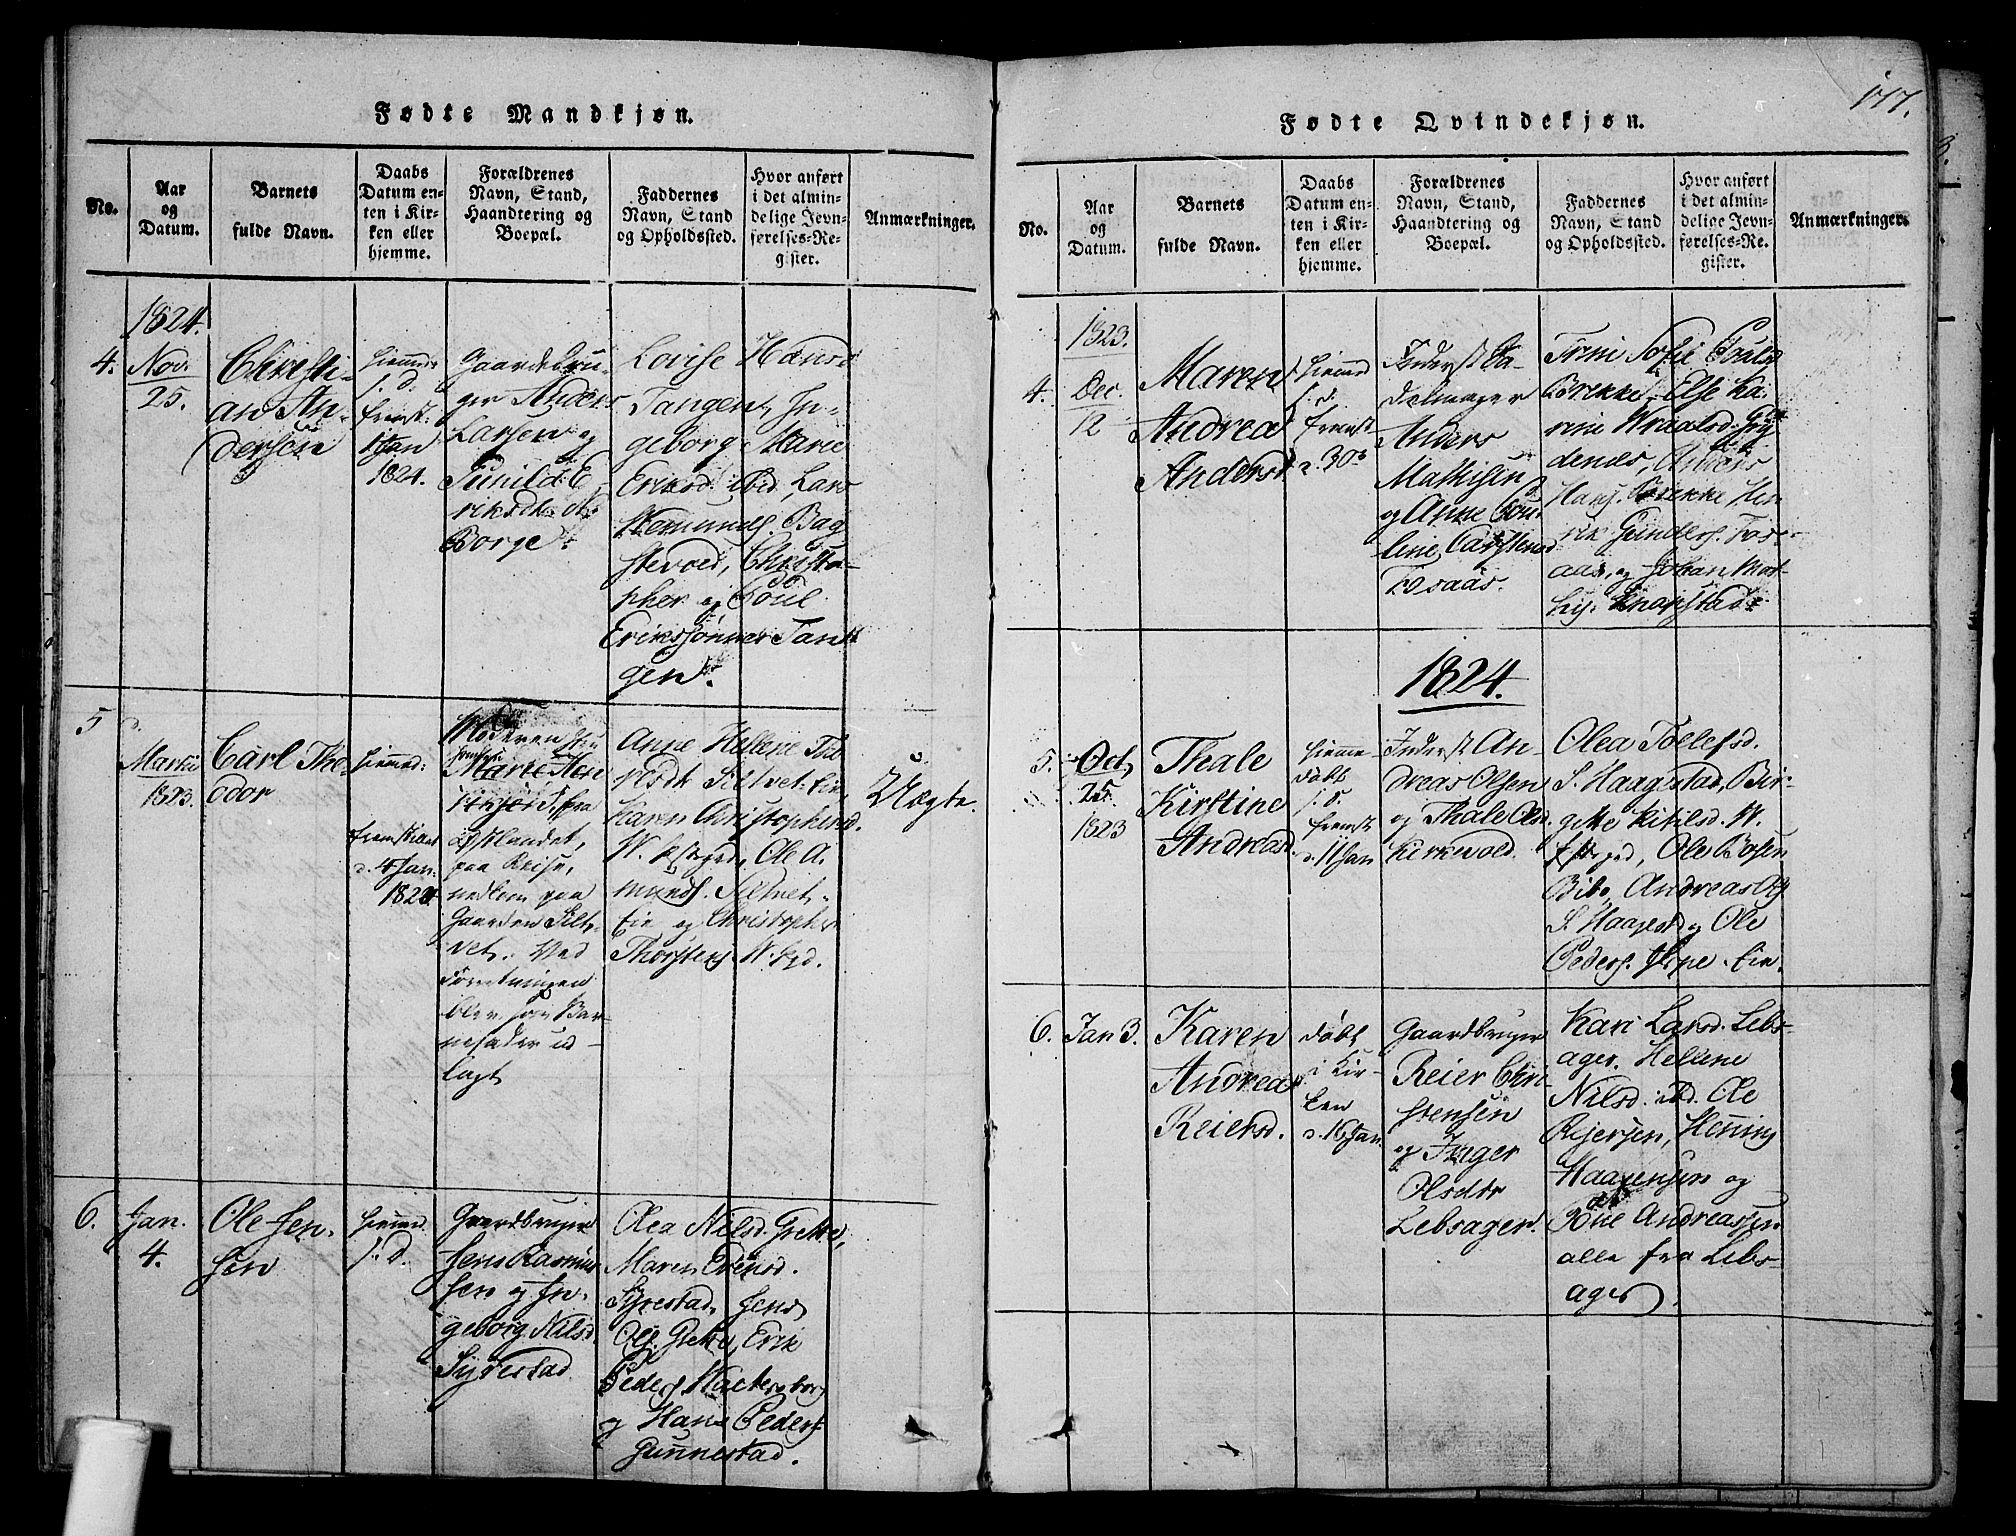 177.
Fødte Mandkjøn.
No.
Aar
og
Datum.
Barnets
fulde Navn.
Daabs
Datum en-
ten i Kir-
ken eller
hjemme.
Forældrenes
Navn, Stand,
Haandtering og
Boepæl.
Faddernes
Navn, Stand
og Opholdssted.
Hvor anført
i det almin-
delige Jevn-
førelses-Re-
gister.
Anmærkninger.
1824.
4.
Nov.
25.
Christi-
an An-
dersen
hjemme
d.
fremst.
1 Jan
1824.
Gaardbru-
ger Anders
Larsen og
Gunild E
riksdt.
Borge.
Lovise Hansd
Tangen, In-
geborg Marie
Eriksd. ibid, Lars
Bag
stevold, Christo-
pher og Poul
Erikssønner Tan
gen.
5
d.
1823.
Carl The-
odor
hjemmed:
fremstillet
d. 4 Jan.
1824
Moderen
Marie
fra
paa Reise,
nedkom paa
Gaarden Silt-
vet. Ved
Forretningen
blev som Bar-
nefader ud-
lagt
Anne Hellene
Siltvet-Eie
Karen Christophersd.
Ole A.
munds. Siltvet-
Eie og Christopher
Thorstens.
Uægte.
6.
Jan.
4.
Ole Jen-
sen
hjemmed.
d.
Gaardbruger
Jens Rasmus
sen og In-
geborg Nilsd.
Syrestad
Olea Nilsd. Grette,
Maren
Syrestad, Jens
Ols. Grette, Erik
Peders
og Hans Peders
Gunnestad.
Fødte Qvindekjøn.
No.
Aar
og
Datum.
Barnets
fulde Navn.
Daabs
Datum en-
ten i Kir-
ken eller
hjemme.
Forældrenes
Navn, Stand,
Haandtering og
Boepæl.
Faddernes
Navn, Stand
og Opholdssted.
Hvor anført
i det almin-
delige Jevn-
førelses-Re-
gister.
Anmærkninger.
1823.
4.
Dec.
12
Maren
Andrea
Andersd
hjemmed
d.
fremst
d. 30
Inderst Sa-
delmager
Anders
Mathisen
og Anne Pou
line Carstensd
Fosaas.
Trine Sofie Pouls
Brekke, Else Ka-
rine
denes, Anders
Hans. Brekke Hen
rik Gunders. Fos-
aas, og Johan Mat-
his. Knapstad
1824.
5.
Oct,
25.
1823
Thale
Kirstine
Andreasd
hjemme
døbt
d.
fremst
d. 11 Jan
Inderst An-
dreas Olsen
og Thale Olsd.
Kirkevold.
Olea Tollefsd.
S. Haagestad, Bir-
gette Kitilsd. W.
Ole Bosen
Bibo, Andreas Ols
S. Haagestd og Ole
Peders. Eie.
6.
Jan 3.
Karen
Andrea
Reiersd.
døbt
i Kir-
ken
d. 16 Jan.
Gaardbruger
Reier Chri-
stensen
og Inger
Olsdtr
Lebsager.
Kari Larsd. Lebs-
ager. Hellene
Nilsd. ibd. Ole
Rejersen, Henning
Haagensen og
Andreassen
alle fra Lebs-
ager.